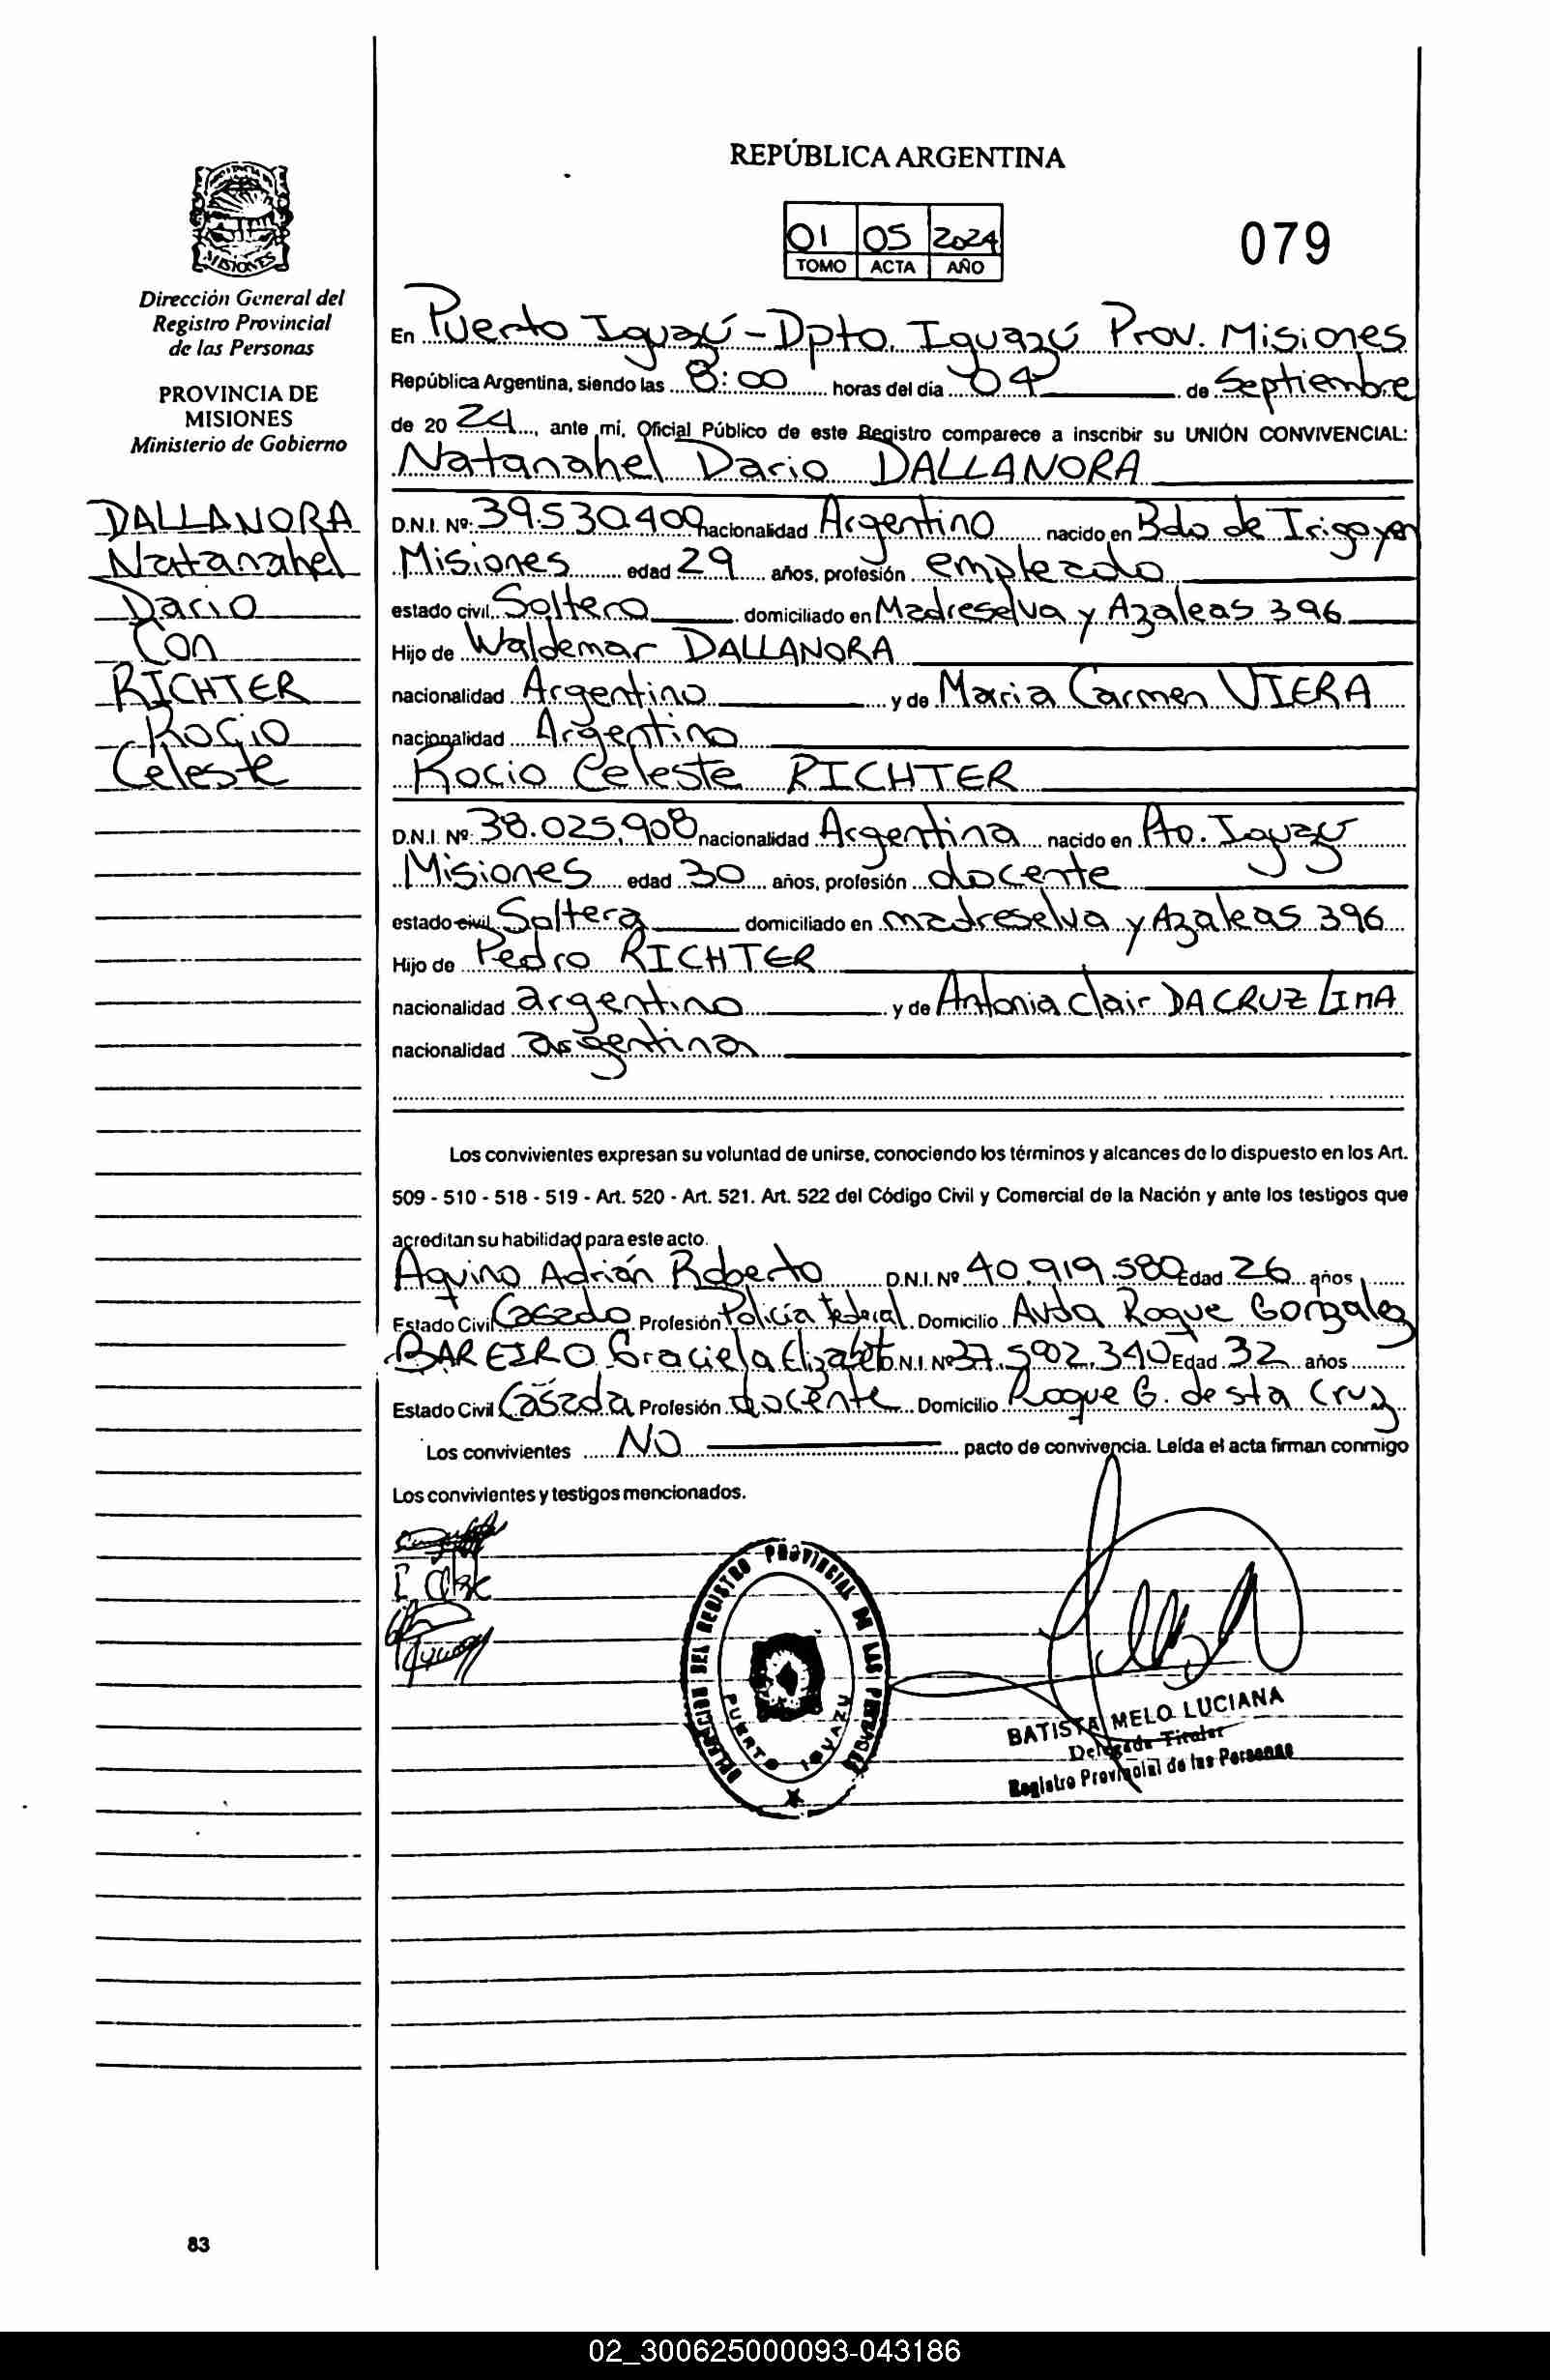 REPÚBLICA ARGENTINA
01 05 2024
TOMO ACTA AÑO
079
MISIONES
Dirección General del
Registro Provincial
de las Personas
PROVINCIA DE
MISIONES
Ministerio de Gobierno
DALLANORA
Natanahel
Dario
Con
RICHTER
Rocio
Celeste
En Puerto Iguazú - Dpto. Iguazú Prov. Misiones
República Argentina, siendo las 8:00 horas del día 04 de Septiembre
de 20 24, ante mí, Oficial Público de este Registro comparece a inscribir su UNIÓN CONVIVENCIAL:
Natanahel Dario DALLANORA
D.N.I. Nº: 39.530.409 nacionalidad Argentino nacido en Bdo de Irigoyen
Misiones edad 29 años, profesión empleado
estado civil Soltero domiciliado en Madreselva y Azaleas 396
Hijo de Waldemar DALLANORA
nacionalidad Argentino y de Maria Carmen VIERA
nacionalidad Argentino
Rocio Celeste RICHTER
D.N.I. Nº: 38.025.908 nacionalidad Argentina nacido en Pto. Iguazú
Misiones edad 30 años, profesión docente
estado civil Soltera domiciliado en madreselva y Azaleas 396
Hijo de Pedro RICHTER
nacionalidad argentino y de Antonia Clair DA CRUZ LIMA
nacionalidad argentina
Los convivientes expresan su voluntad de unirse, conociendo los términos y alcances de lo dispuesto en los Art.
509 - 510 - 518 - 519 - Art. 520 - Art. 521. Art. 522 del Código Civil y Comercial de la Nación y ante los testigos que
acreditan su habilidad para este acto.
Aquino Adrián Roberto D.N.I. Nº 40.919.580 Edad 26 años
Estado Civil Casado Profesión Policía Federal Domicilio Avda Roque Gonzalez
BAREIRO Graciela Elizabet D.N.I. Nº 37.5902.340 Edad 32 años
Estado Civil Casada Profesión docente Domicilio Roque G. de sta Cruz
Los convivientes NO pacto de convivencia. Leída el acta firman conmigo
Los convivientes y testigos mencionados.
DELEGACION DEL REGISTRO PROVINCIAL DE LAS PERSONAS
PUERTO IGUAZU
BATISTA MELO LUCIANA
Delegada Titular
Registro Provincial de las Personas
83
02_300625000093-043186